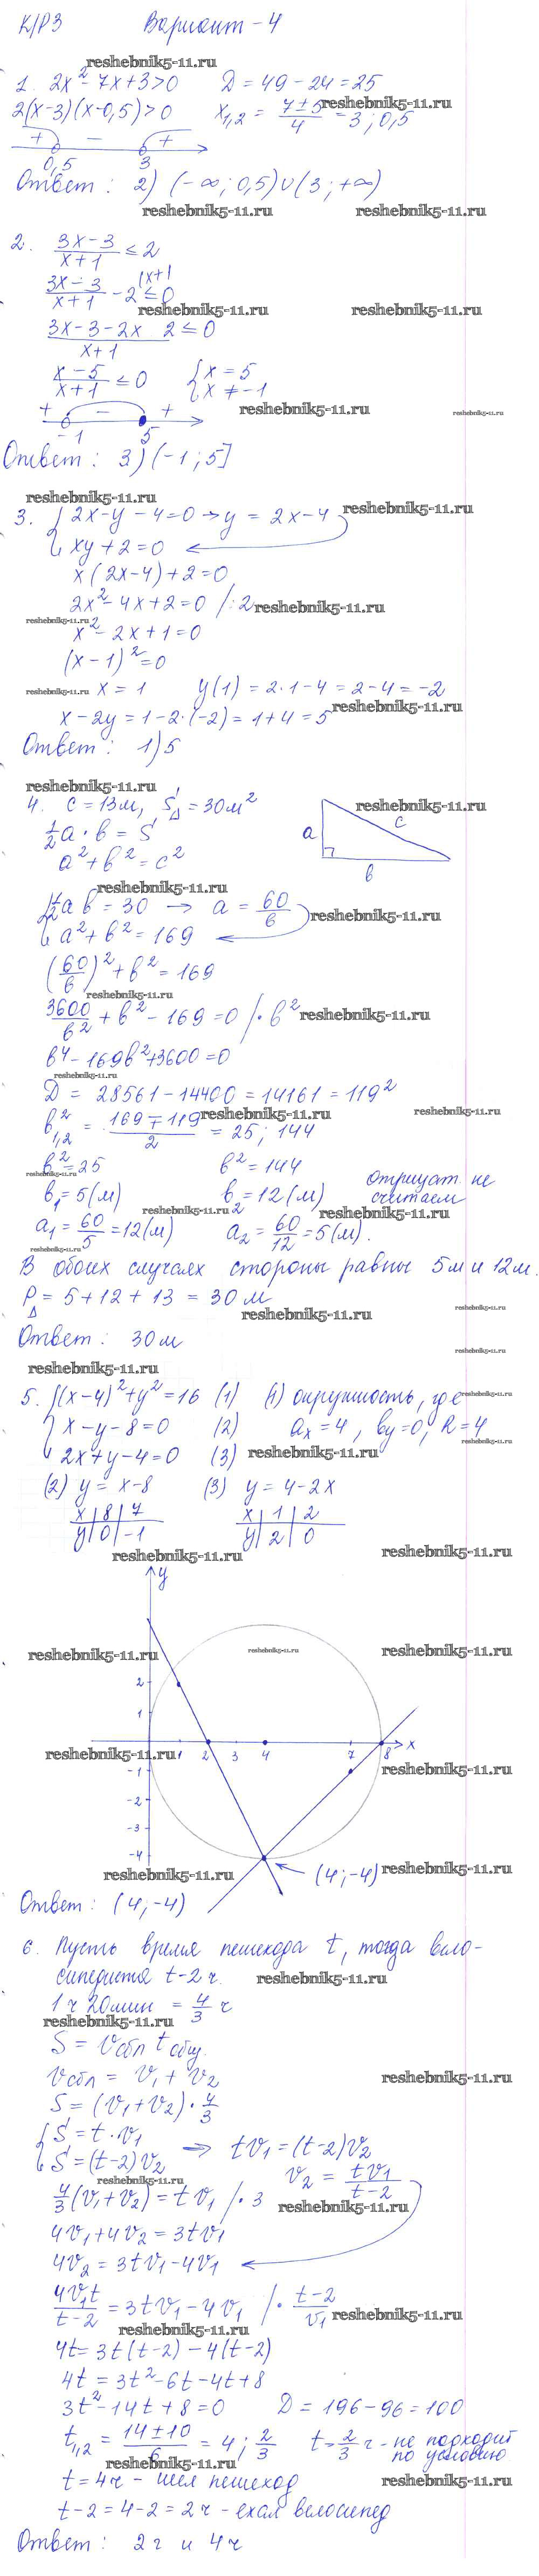 К/Р3 Вариант - 4
reshebnik5-11.ru
1. 2x² - 7x + 3 > 0 D = 49 - 24 = 25
2(x-3)(x-0,5) > 0 x₁,₂ = (7 ± 5)/4 = 3 ; 0,5
reshebnik5-11.ru
+ - +
0,5 3
Ответ : 2) (-∞; 0,5) ∪ (3 ; +∞)
reshebnik5-11.ru reshebnik5-11.ru
2. (3x - 3)/(x + 1) ≤ 2
(3x - 3)/(x + 1) - 2 ≤ 0 (x+1
reshebnik5-11.ru reshebnik5-11.ru
(3x - 3 - 2x 2)/(x + 1) ≤ 0
(x - 5)/(x + 1) ≤ 0 { x = 5
x ≠ -1
reshebnik5-11.ru reshebnik5-11.ru
+ - +
-1 5
Ответ : 3) (-1 ; 5]
reshebnik5-11.ru
3. { 2x - y - 4 = 0 → y = 2x - 4
reshebnik5-11.ru
xy + 2 = 0
x(2x - 4) + 2 = 0
2x² - 4x + 2 = 0 / : 2
reshebnik5-11.ru
reshebnik5-11.ru
x² - 2x + 1 = 0
(x - 1)² = 0
reshebnik5-11.ru x = 1 y(1) = 2·1 - 4 = 2 - 4 = -2
reshebnik5-11.ru
x - 2y = 1 - 2·(-2) = 1 + 4 = 5
Ответ : 1) 5
reshebnik5-11.ru
4. c = 13м, S△ = 30м²
reshebnik5-11.ru
½a · b = S a c
a² + b² = c²
b
reshebnik5-11.ru
{ ½ab = 30 → a = 60/b
reshebnik5-11.ru
a² + b² = 169
(60/b)² + b² = 169
reshebnik5-11.ru
3600/b² + b² - 169 = 0 / · b²
reshebnik5-11.ru
b⁴ - 169b² + 3600 = 0
reshebnik5-11.ru
D = 28561 - 14400 = 14161 = 119²
reshebnik5-11.ru reshebnik5-11.ru
b²₁,₂ = (169 ∓ 119)/2 = 25 ; 144
b² = 25 b² = 144 Отрицат. не
reshebnik5-11.ru
b₁ = 5(м) b₂ = 12(м) считаем
reshebnik5-11.ru reshebnik5-11.ru
a₁ = 60/5 = 12(м) a₂ = 60/12 = 5(м).
reshebnik5-11.ru
В обоих случаях стороны равны 5м и 12м.
P△ = 5 + 12 + 13 = 30 м
reshebnik5-11.ru reshebnik5-11.ru
Ответ : 30 м
reshebnik5-11.ru
reshebnik5-11.ru
5. { (x - 4)² + y² = 16 (1) (1) окружность, где
reshebnik5-11.ru
x - y - 8 = 0 (2) aₓ = 4, b_y = 0, R = 4
reshebnik5-11.ru
2x + y - 4 = 0 (3)
reshebnik5-11.ru
(2) y = x - 8 (3) y = 4 - 2x
x | 8 | 7 x | 1 | 2
y | 0 | -1 y | 2 | 0
reshebnik5-11.ru reshebnik5-11.ru
y
reshebnik5-11.ru reshebnik5-11.ru reshebnik5-11.ru
2
1
1 2 3 4 7 8 x
reshebnik5-11.ru
-1
reshebnik5-11.ru
-2
-3
-4
reshebnik5-11.ru (4 ; -4) reshebnik5-11.ru
Ответ : (4 ; -4)
6. Пусть время пешехода t, тогда вело-
сипедиста t - 2 ч.
reshebnik5-11.ru
1 ч 20 мин = 4/3 ч
reshebnik5-11.ru
S = Vсбл tобщ.
Vсбл = V₁ + V₂
reshebnik5-11.ru
S = (V₁ + V₂) · 4/3
{ S = t · V₁
S = (t - 2)V₂ ⇒ tV₁ = (t - 2)V₂
reshebnik5-11.ru
V₂ = tV₁/(t - 2)
4/3(V₁ + V₂) = tV₁ / · 3
reshebnik5-11.ru
4V₁ + 4V₂ = 3tV₁
4V₂ = 3tV₁ - 4V₁
4V₁t/(t - 2) = 3tV₁ - 4V₁ / · (t - 2)/V₁
reshebnik5-11.ru
reshebnik5-11.ru
4t = 3t(t - 2) - 4(t - 2)
4t = 3t² - 6t - 4t + 8
3t² - 14t + 8 = 0 D = 196 - 96 = 100
t₁,₂ = (14 ± 10)/6 = 4 ; 2/3 t = 2/3 ч - не подходит
по условию
reshebnik5-11.ru
t = 4ч - шел пешеход
reshebnik5-11.ru
t - 2 = 4 - 2 = 2 ч - ехал велосипед
Ответ : 2 ч и 4 ч